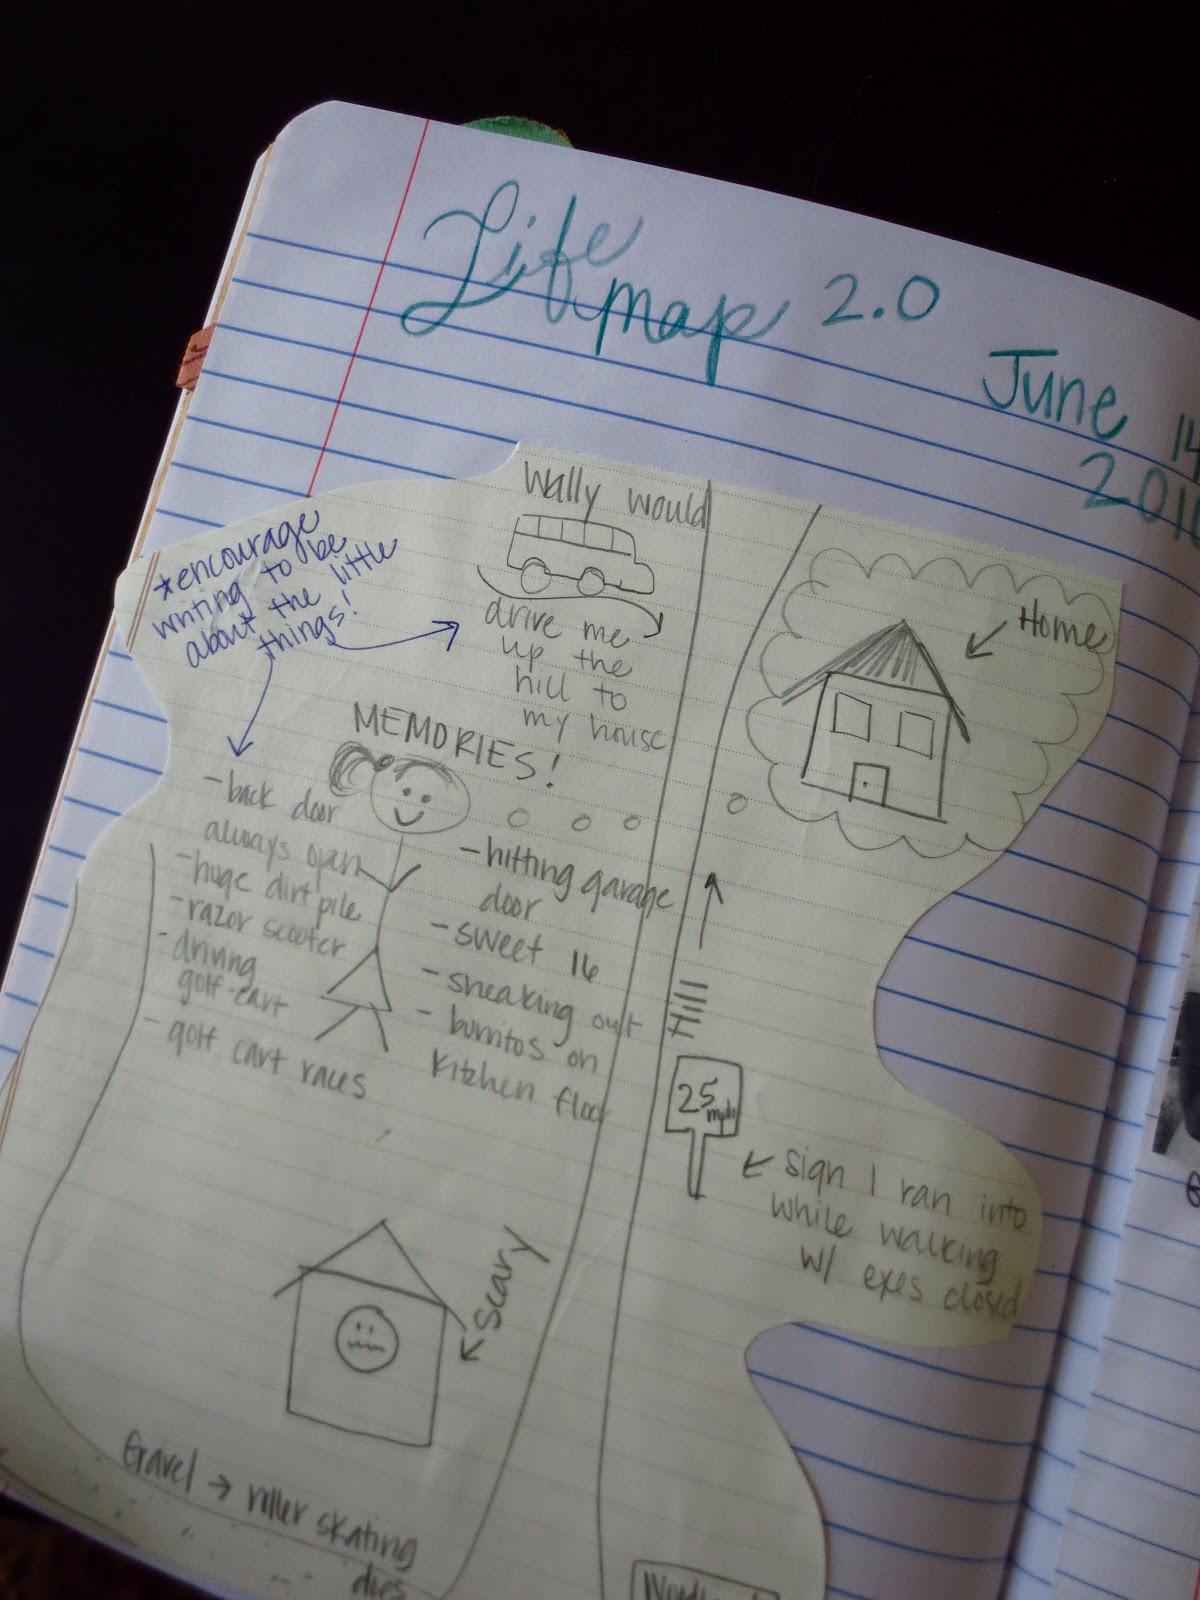 Life
map 2.0
June 14
*encourage
writing to be
about the little
things!
Wally would
drive me
up the
hill to
my house
Home
MEMORIES!
-back door
always open
-huge dirt pile
-razor scooter
-driving
golf-cart
-golf cart races
-hitting garage
door
-sweet 16
-sneaking out
-burritos on
kitchen floor
25
mph
sign I ran into
while walking
w/ eyes closed
scary
Gravel → roller skating